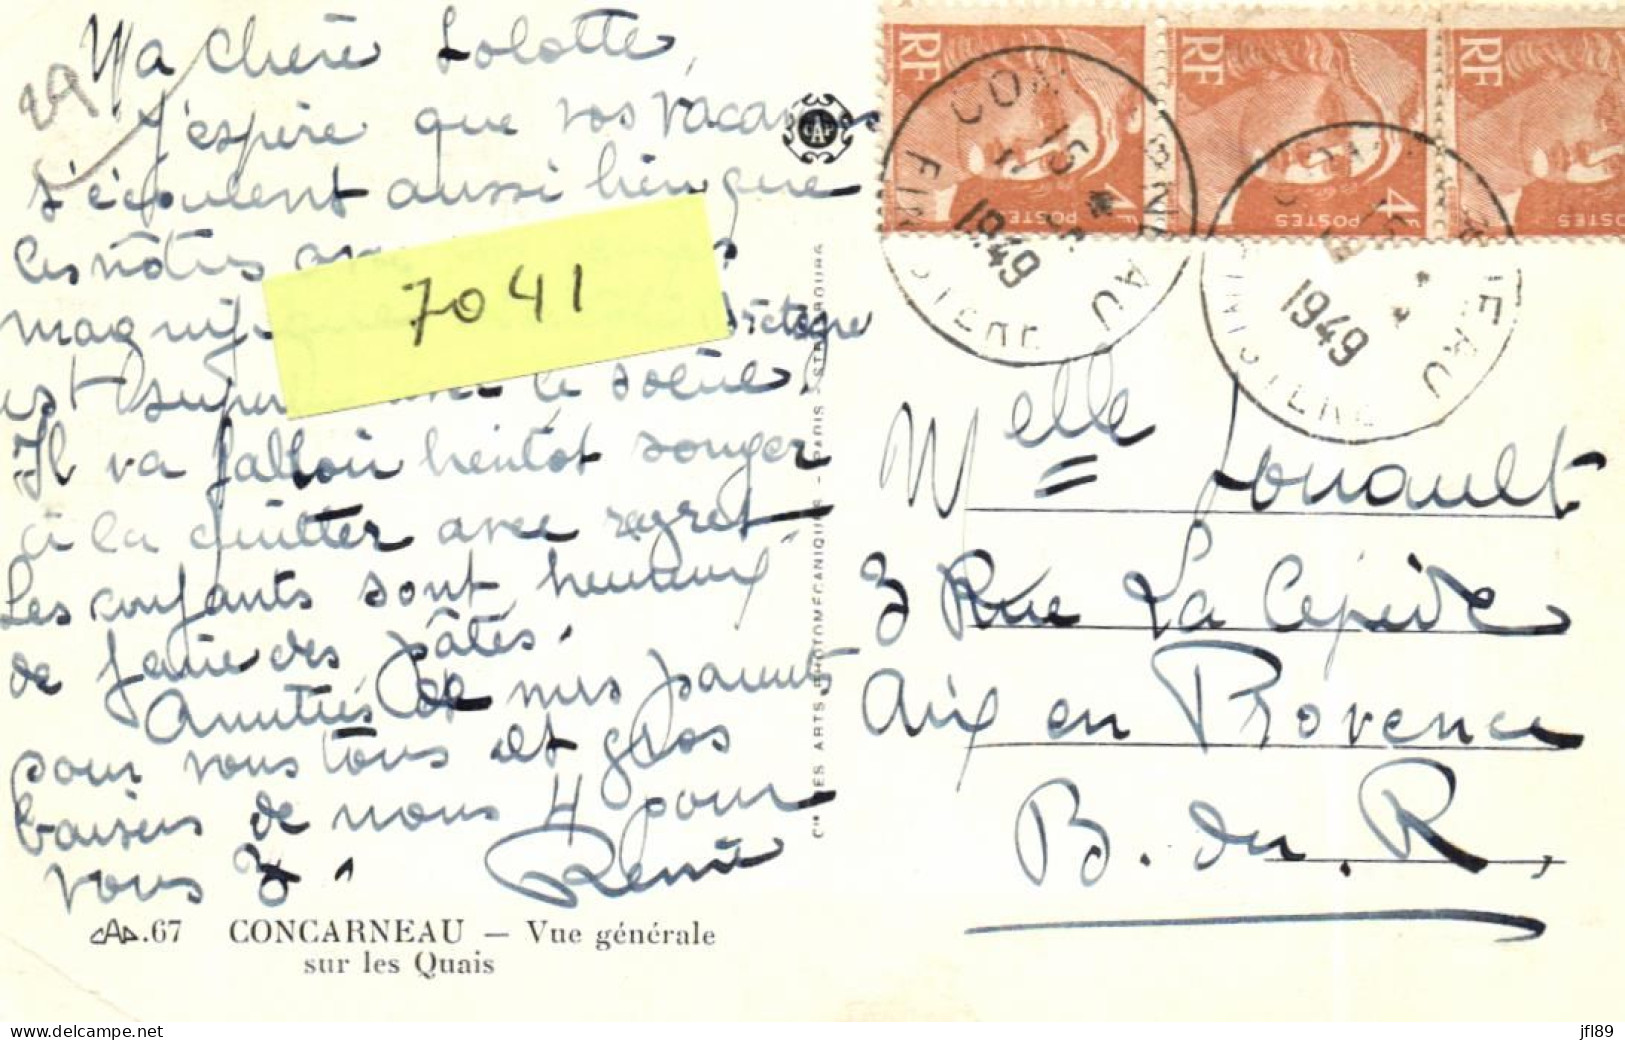 29
Ma Chère Lolotte,
J'espère que vos vacances
s'écoulent aussi bien que
les nôtres
7041
magnif Bretagne
est super le soleil.
Il va falloir bientôt songer
à la quitter avec regret
Les enfants sont heureux
de faire des pâtés.
Amitiés de mes parents
pour vous tous et gros
baisers de nous 4 pour
vous 3.
René
CAP.67 CONCARNEAU – Vue générale
sur les Quais
CAP
Cie DES ARTS PHOTOMÉCANIQUES - PARIS - STRASBOURG
RF POSTES 4F
RF POSTES 4F
RF POSTES
CONCARNEAU
15
1949
FINISTERE
CONCARNEAU
15
1949
FINISTERE
Melle Jouault
3 Rue La Cépède
Aix en Provence
B. du. R,
delcampe.net
jfl89